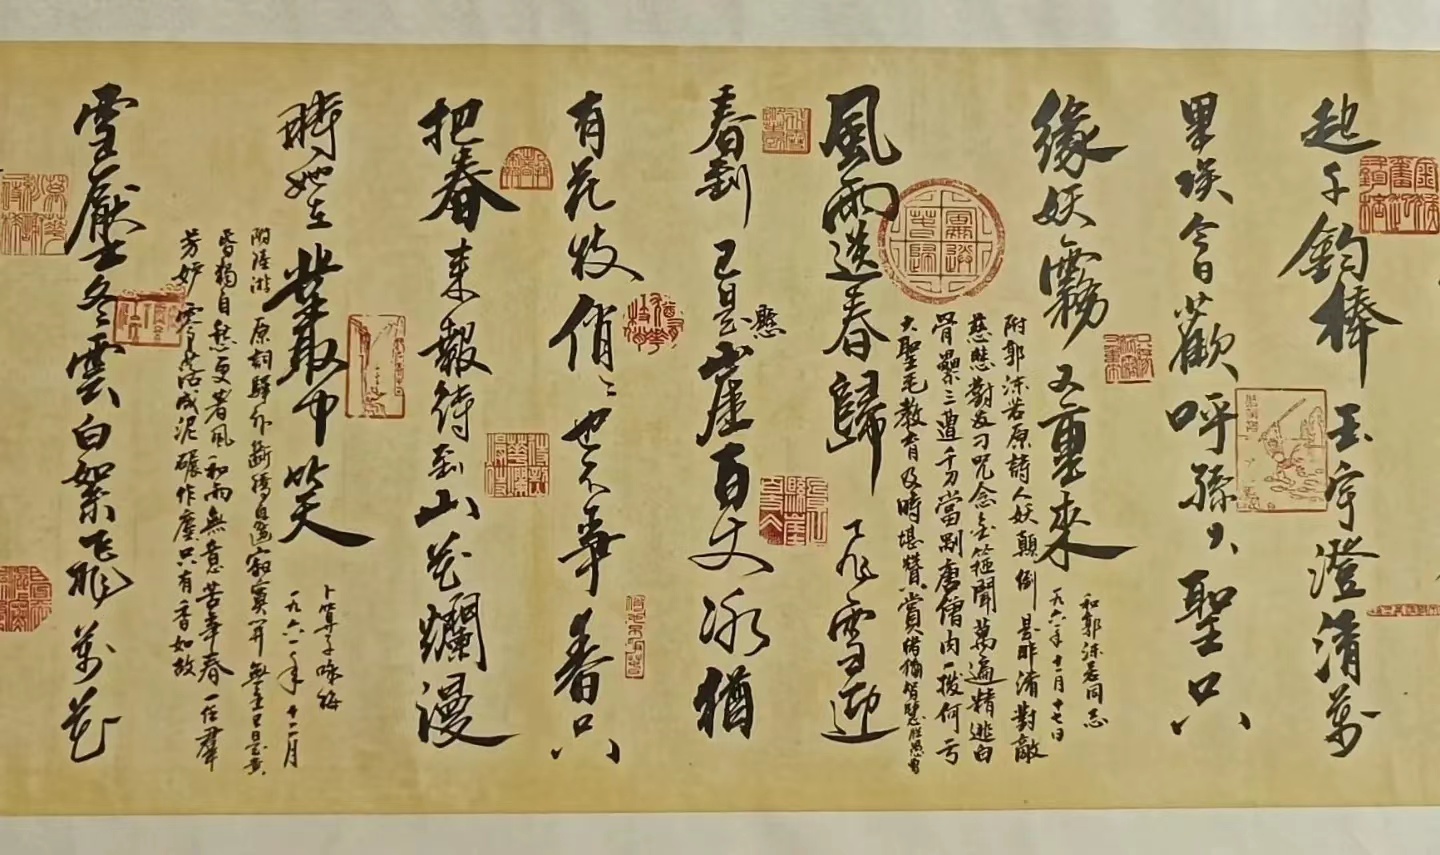 起千鈞棒玉宇澄清萬
里埃今日歡呼孫大聖只
緣妖霧又重來
和郭沫若同志
一九六一年十一月十七日
附郭沫若原詩人妖顛倒是非淆對敵
慈悲對友刁咒念金箍聞萬遍精逃白
骨纍三遭千刀當剮唐僧肉一拔何亏
大聖毛教育及時堪讚賞猪猶智慧勝愚曹
風雨送春歸飛雪迎
春到已是懸崖百丈冰猶
有花枝俏〻也不爭春只
把春來報待到山花爛漫
時她在叢中笑
卜算子咏梅
一九六一年十二月
附陸游原詞驛外斷橋邊寂寞開無主已是黃
昏獨自愁更著風和雨無意苦爭春一任羣
芳妒零落成泥碾作塵只有香如故
雪壓冬雲白絮飛萬花